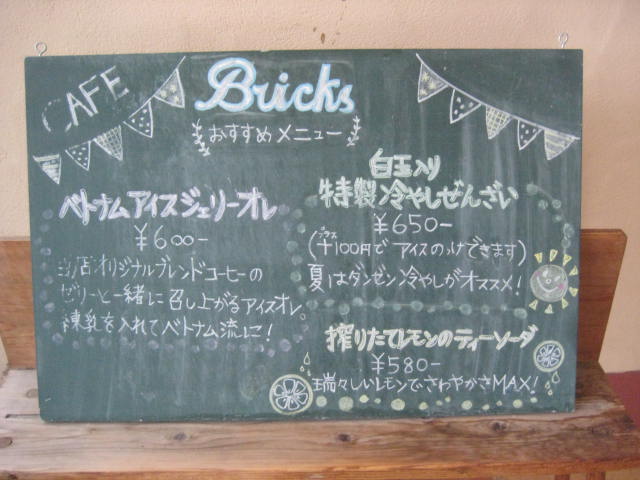 CAFE
Bricks
おすすめメニュー
ベトナムアイスジェリーオレ
¥600-
当店オリジナルブレンドコーヒーの
ゼリーと一緒に召し上がるアイスオレ。
練乳を入れてベトナム流に!
白玉入り
特製冷やしぜんざい
¥650-
(プラス
+100円でアイスのっけできます)
夏はダンゼン冷やしがオススメ!
搾りたてレモンのティーソーダ
¥580-
瑞々しいレモンでさわやかさMAX!